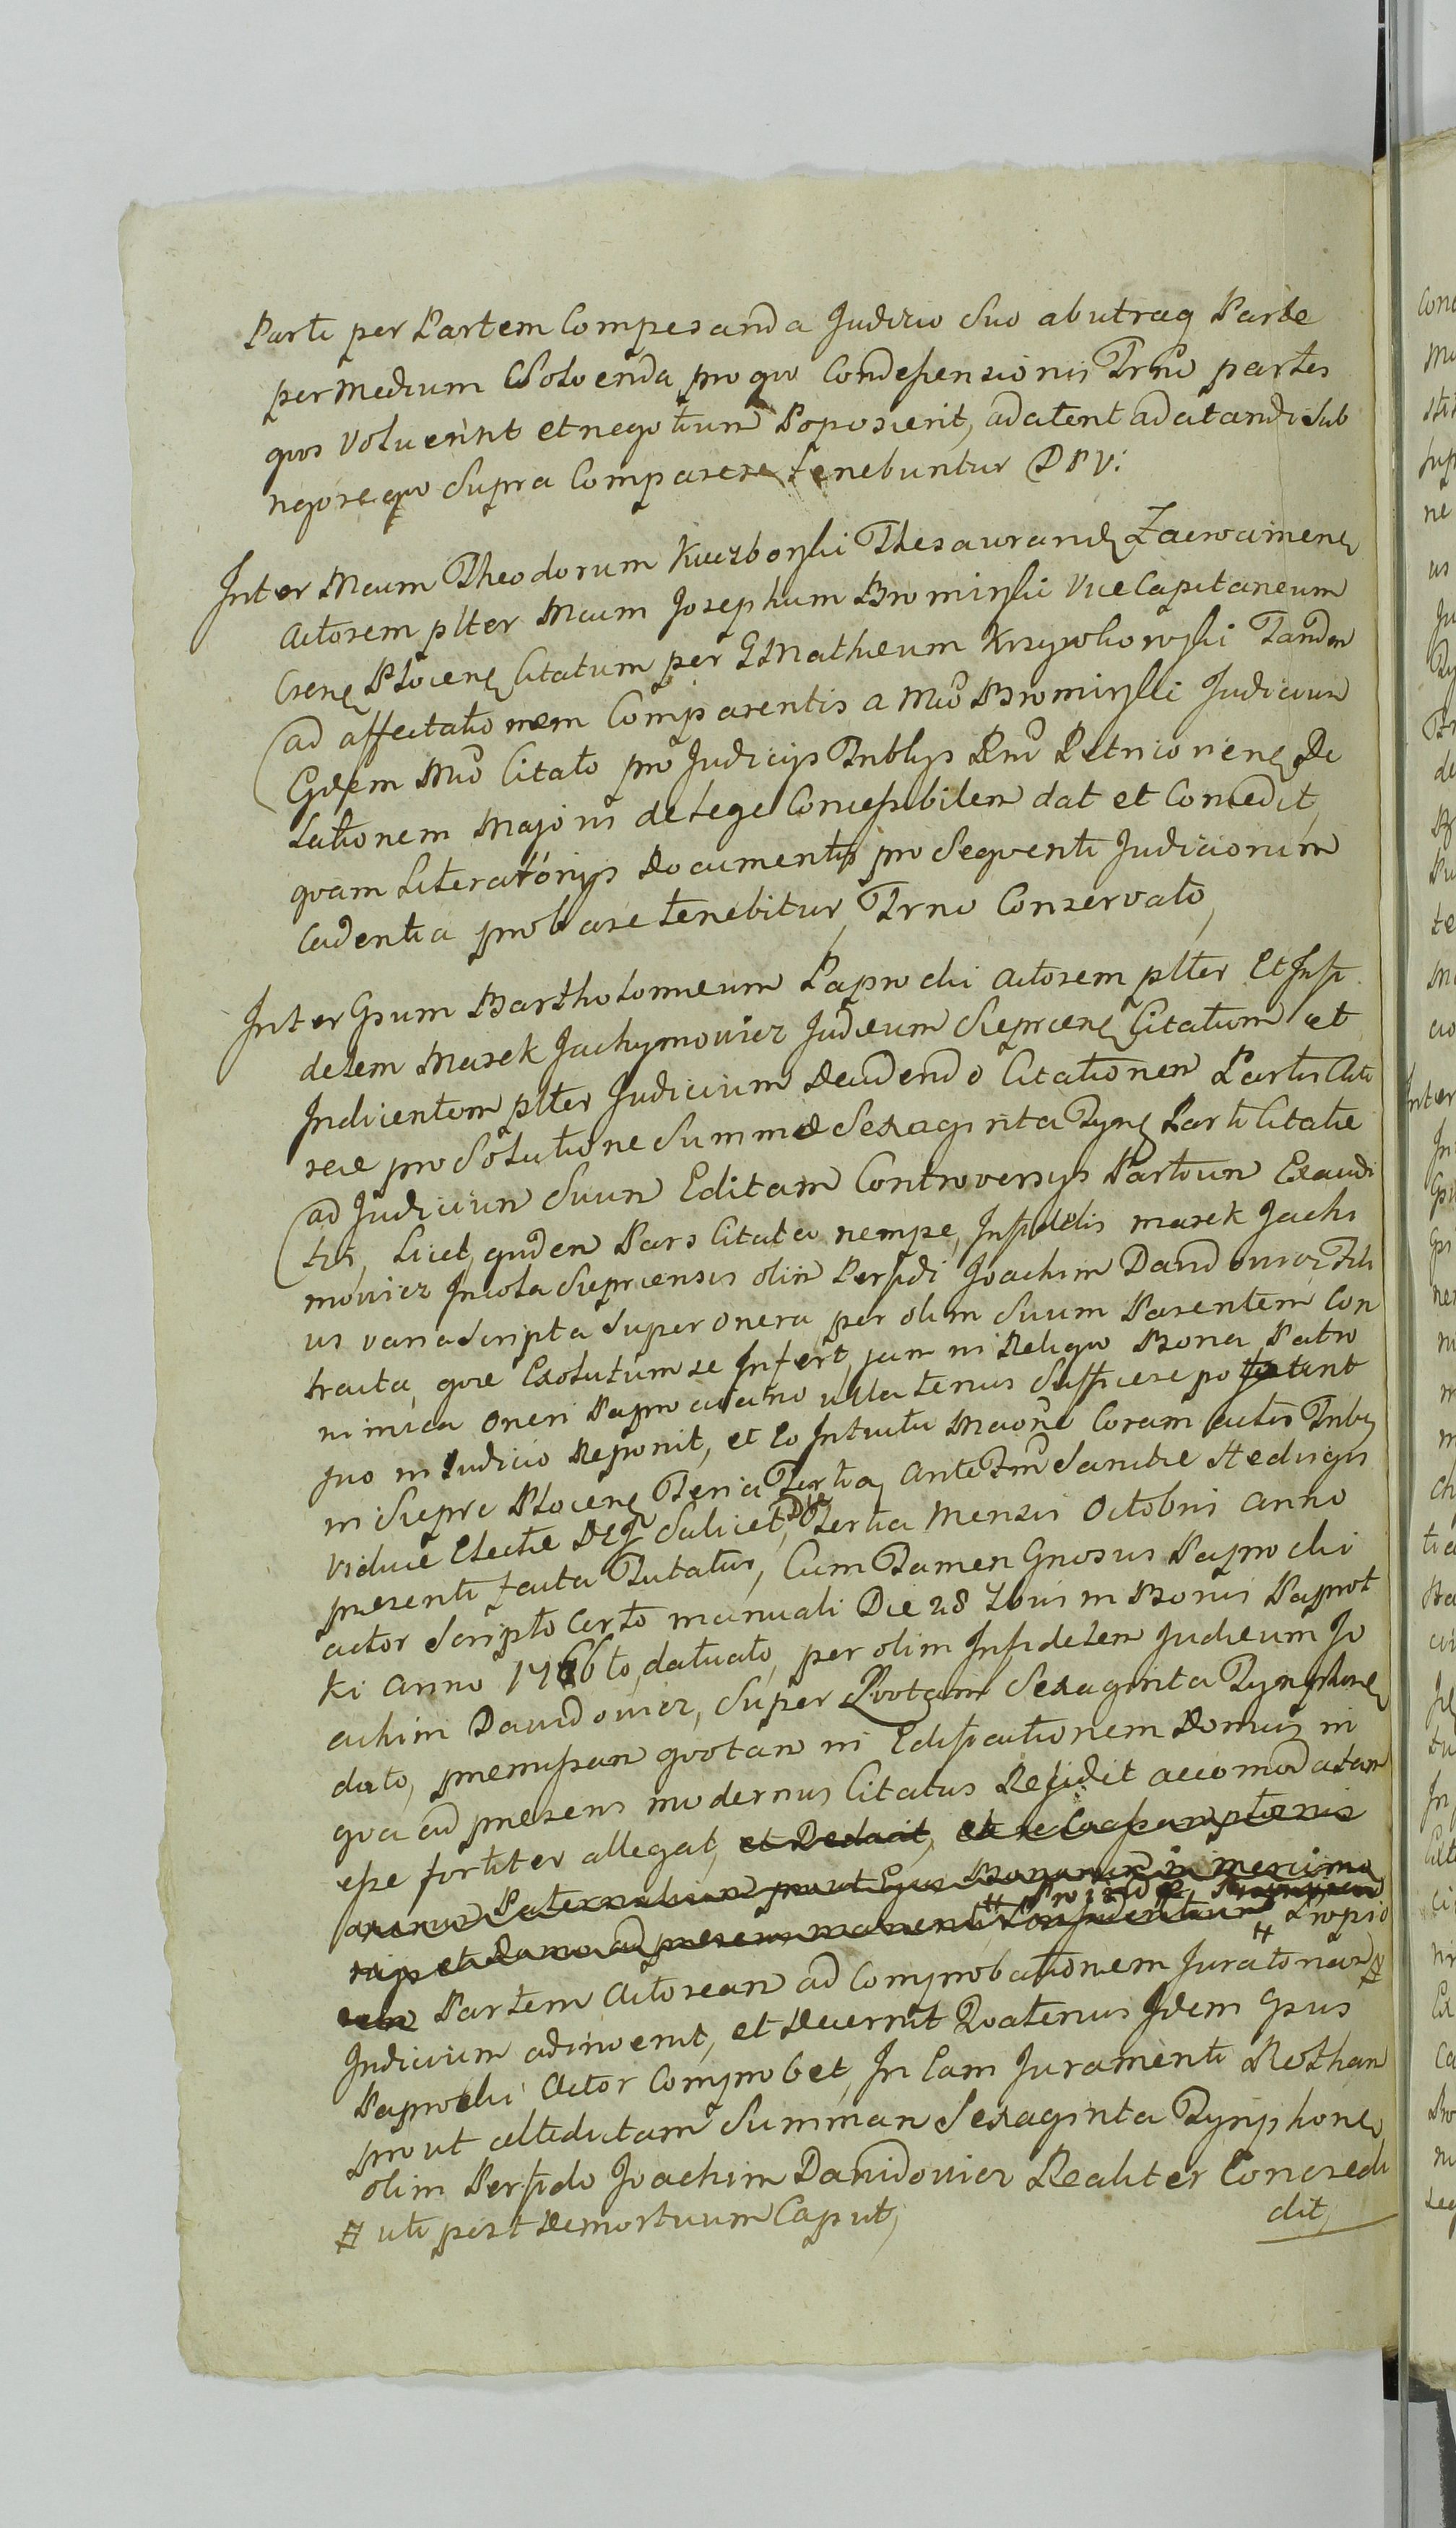 Parti per Partem Compesanda Judicio Suo ab utraq Parte
per Medium Solvenda pro quo Condescensionis Trno partes
quos Voluerint et negotium Poposcerit, adcitent adcitandi Sub
rigore quo Supra Comparere tenebuntur DPV:
Inter Mcum Theodorum Kuczborski Thesaurarid Zacrocimens
Actorem plter Mcum Josephum Bromirski Vice Capitaneum
Crens Plocens Citatum per G Matheum Krzywkowski Tandem
ad affectationem Comparentis a Mco Bromirski Judicium
Eidem Mco Citato pro Judicijs Trblbs Rni Petricoviens De
lationem Majoris de Lege Concessibilem dat et Concedit,
quam Literatorijs Documentis pro Sequenti Judiciorum
Cadentia probare tenebitur, Trno Conservato,
Inter Gsum Bartholomeum Paprocki Actorem plter Et Infi
delem Marek Jachymowicz Judeum Sieprcens Citatum et
Indicentem plter Judicium Decidendo Citationem Partis Acto
reæ pro Solutione Summæ Sexaginta Tynf Parti Citatæ
ad Judicium Suum Editam Controversijs Partium Exaudi
tis, Licet quidem Pars Citata nempe, Infidelis Marek Jachi
mowicz Incola Sieprcensis olim Perfidi Joachim Dawidowicz Fili
us varia Scripta Super onera per olim Suum Parentem Con
tracta, quæ Exolutum se Infert, jam in Reliquo Bona Patro
nimica Oneri Paprocciano ullatenus Sufficere po tant
suo in Judicio Reponit, et Eo Intuitu Maone Coram Actis Trbs
in Sieprc Plocens Feria Tertia Ante Ftm Sanctæ Hedvigis
Viduæ Electæ Scilicet, Die Tertia Mensis Octobris Anno
presenti facta Tutatur, Cum Tamen Gnosus Paprocki
actor Scripto Certo manuali Die 28 7bris in Bonis Paprot
ki Anno 1766to datuato, per olim Infidelem Judæum Jo
achim Dawidowicz, Super Quotam Sexaginta Tynphone
dato, præmissam quotam in Edificationem Domus in
qua ad præsens modernus Citatus Residit accomodatam
esse fortiter allegat, et Deducit, et se
Paternalium prout Ejus Bonorum in mercimo
nijs et Domo ad presens manenti Proinde Propio
rem Partem Actoream ad Comprobationem Juratoriam #
Judicium adinvenit, et Decernit Quatenus Idem Gsus
Paprocki Actor Comprobet, In Eam Juramenti Rotham
prout altedictam Summam Sexaginta Tynphone
olim Perfido Joachim Dawidowicz Realiter Concredi
dit,
# uti post Demortuum Caput,